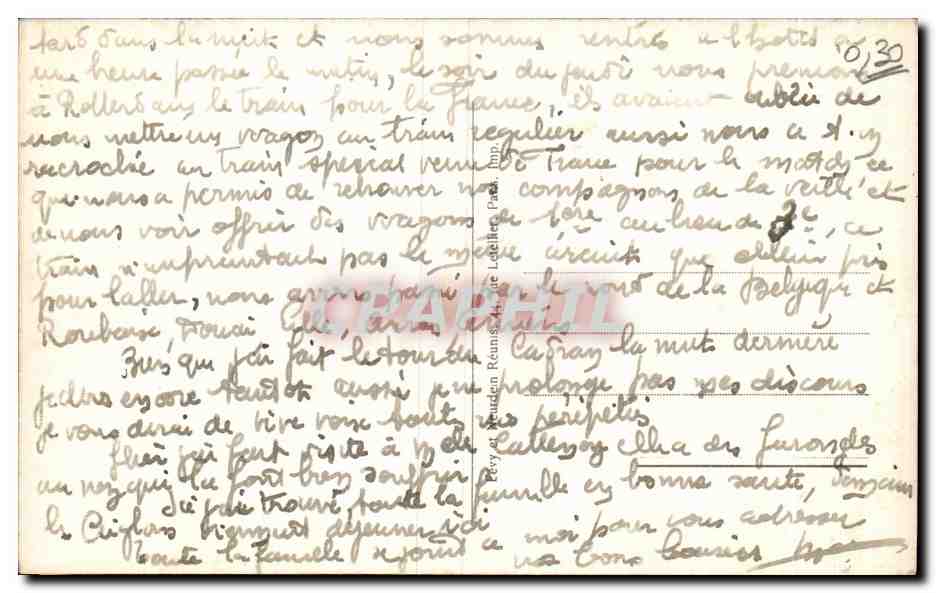 tard dans la nuit et nous sommes rentrés à l'hotel à
0,30
une heure passée le matin, le soir du jeudi nous prenions
à Rotterdam le train pour la France, ils avaient oublié de
nous mettre un wagon au train régulier aussi nous a t-on
racroché au train special venu de pour le match ce
qui nous a permis de retrouver nos compagnons de la veille et
de nous voir offrir des wagons de 1ère au lieu de 3e, ce
train n'empruntant pas le même circuit que celui pris
pour l'aller, nous avons passé par le nord de la Belgique et
Roubaix, Douai Lille, Arras Amiens
Bien que j'ai fait le tour du Cadran la nuit dernière
je dors encore tantôt aussi je ne prolonge pas mes discours
je vous dirai de vive voix toutes nos péripéties
Hier j'ai fait visite à elle a des furoncles
au nez qui l'a font bien souffrir
j'ai trouvé toute la famille en bonne santé, demain
les viennent déjeuner ici
toute la famille se joint à moi pour vous adresser
nos bons baisers
Lévy et Neurdein Réunis, 44, Rue Letellier, Paris. Imp.
CPAPHIL